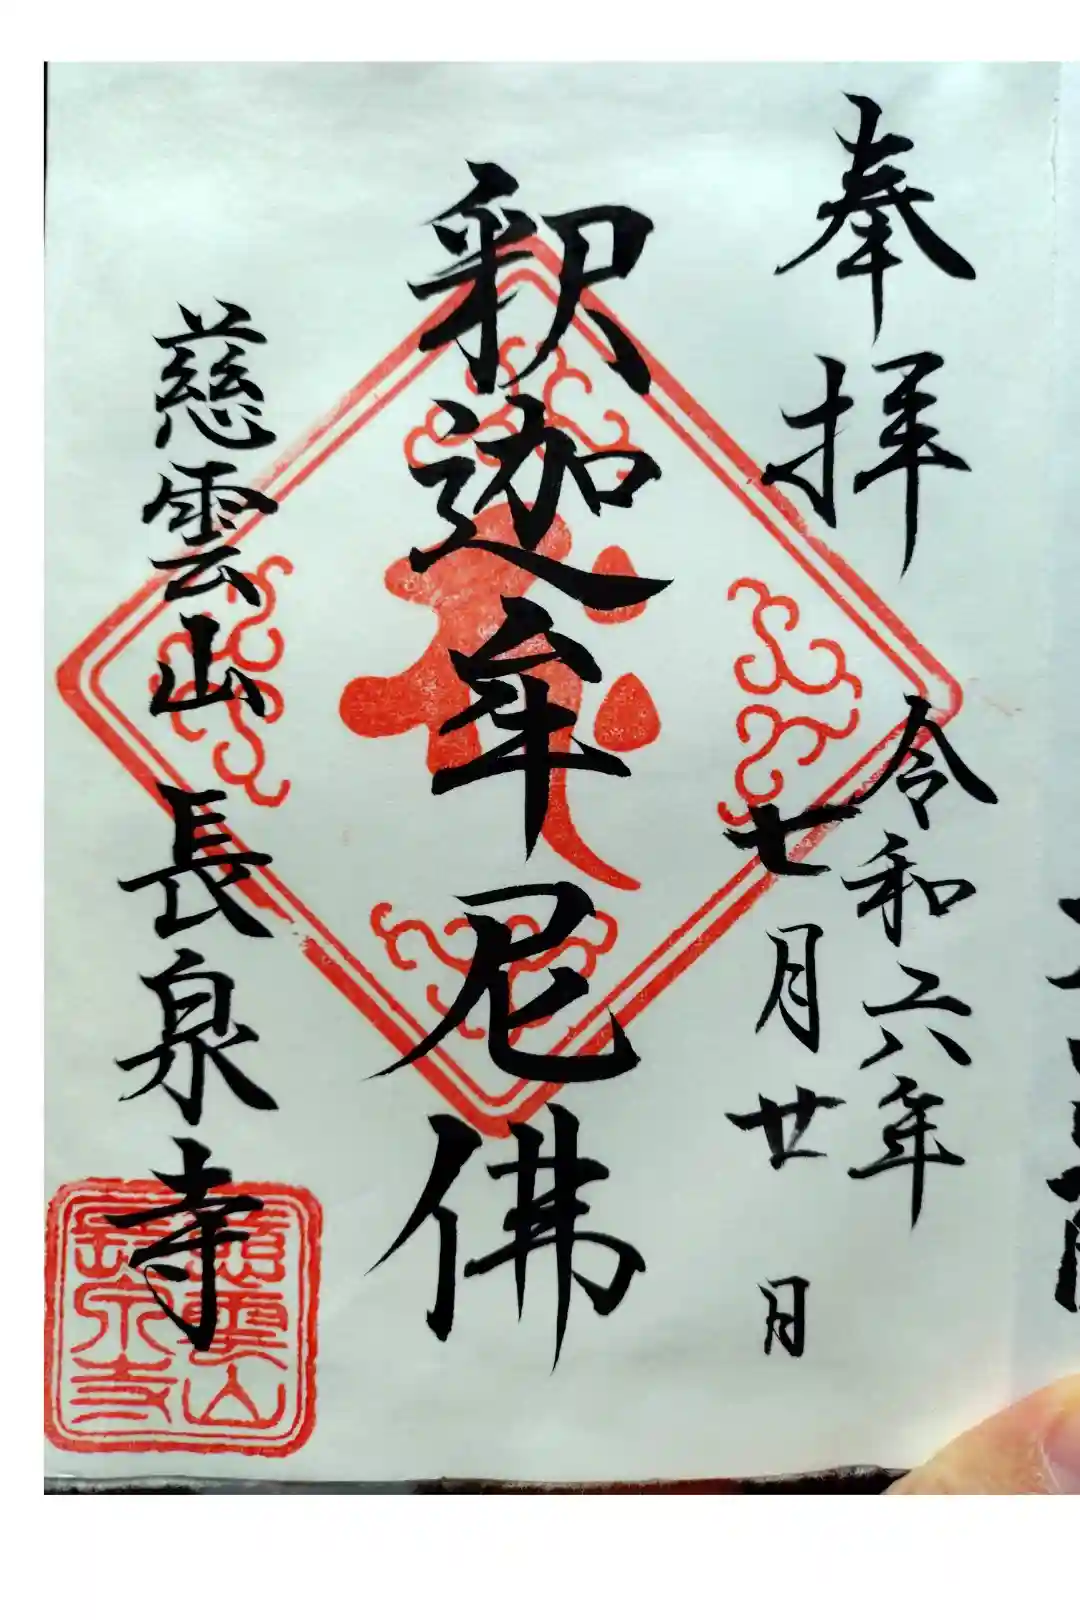 奉拝
令和六年
七月廿月
釈迦牟尼佛
慈雲山長泉寺
慈雲山
長泉寺